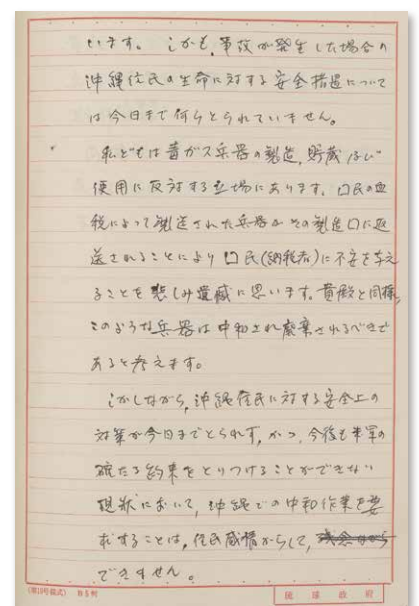 います。しかも、事故が発生した場合の
沖縄住民の生命に対する安全措置について
は今日まで何らとられていません。
私どもは毒ガス兵器の製造、貯蔵ないし
使用に反対する立場にあります。口民の血
税によって製造された兵器がその製造口に返
送されることにより口民(納税者)に不安を与え
ることを悲しみ遺憾に思います。貴殿と同様、
このような兵器は中和され廃棄されるべきで
あると考えます。
しかしながら、沖縄住民に対する安全上の
対策が今日までとられず、かつ、今後も米軍の
確たる約束をとりつけることができない
現状において、沖縄での中和作業を要
求することは、住民感情からして、残念ながら
できません。
(第13号様式) B5判
琉球政府